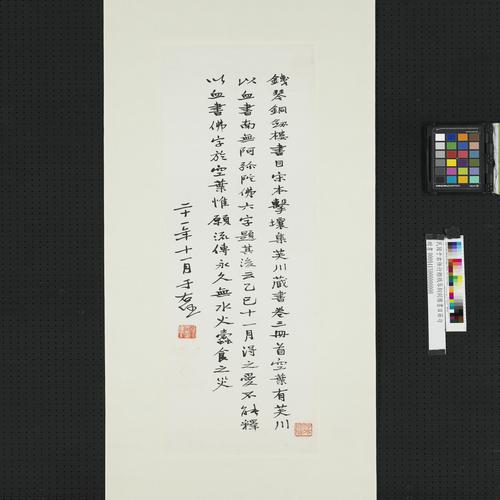 鐵琴銅劍樓書目宋本擊壤集芙川藏書卷三冊首空葉有芙川
以血書南無阿彌陀佛六字題其後云乙巳十一月得之愛不能釋
以血書佛字於空葉惟願流傳永久無水火蠹食之災
二十一年十一月 于右任